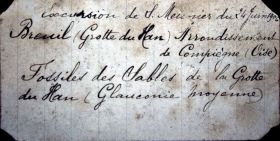 excursion de S. Meunier du 24 Juin
Breuil (Grotte du Han) Arrondissement
de Compiègne (Oise)
Fossiles des Sables de la Grotte
du Han (Glauconie moyenne)